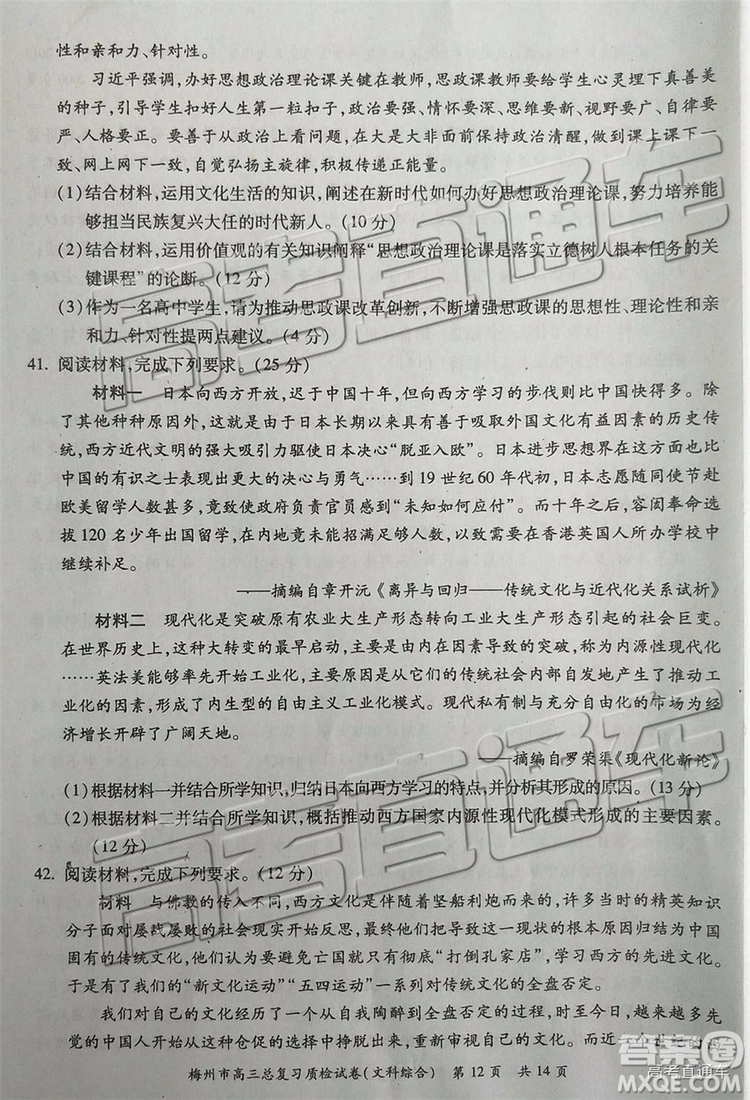 性和亲和力、针对性。
习近平强调,办好思想政治理论课关键在教师,思政课教师要给学生心灵埋下真善美
的种子,引导学生扣好人生第一粒扣子,政治要强、情怀要深、思维要新、视野要广、自律要
严、人格要正。要善于从政治上看问题,在大是大非面前保持政治清醒,做到课上课下一
致、网上网下一致,自觉弘扬主旋律,积极传递正能量。
(1)结合材料,运用文化生活的知识,阐述在新时代如何办好思想政治理论课,努力培养能
够担当民族复兴大任的时代新人。(10 分)
(2)结合材料,运用价值观的有关知识阐释“思想政治理论课是落实立德树人根本任务的关
键课程”的论断。(12 分)
(3)作为一名高中学生,请为推动思政课改革创新,不断增强思政课的思想性、理论性和亲
和力、针对性提两点建议。(4 分)
41. 阅读材料,完成下列要求。(25 分)
材料一 日本向西方开放,迟于中国十年,但向西方学习的步伐则比中国快得多。除
了其他种种原因外,这与日本长期以来具有善于吸取外国文化有益因素的历史传
统,西方近代文明的强大吸引力驱使日本决心“脱亚入欧”。日本进步思想界比
中国的有识之士表现出更大的决心与勇气……到 19 世纪 60 年代初,日本志愿随同使节赴
欧美留学人数甚多,竟致使政府负责官员感到“未知如何应付”。而十年之后,容闳奉命选
拔 120 名少年出国留学,在内地竟未能招满足够人数,以致需要在香港英国人所办学校中
继续补足。
——摘编自章开沅《离异与回归——传统文化与近代化关系试析》
材料二 现代化是突破原有农业大生产形态转向工业大生产形态引起的社会巨变。
在世界历史上,这种大转变的最早启动,主要是由内在因素导致的突破,称为内源性现代化
……英法美能够率先开始工业化,主要原因是从它们的传统社会内部自发地产生了推动工
业化的因素,形成了内生型的自由主义工业化模式。现代私有制与充分自由化的市场为经
济增长开辟了广阔天地。
——摘编自罗荣渠《现代化新论》
(1)根据材料一并结合所学知识,归纳日本向西方学习的特点,并分析其形成的原因。(13 分)
(2)根据材料二并结合所学知识,概括推动西方国家内源性现代化模式形成的主要因素。
(12 分)
42. 阅读材料,完成下列要求。(12 分)
材料 与佛教的传入不同,西方文化是伴随着坚船利炮而来的,少数的精英知识
分子面对屡战屡败的社会现实开始反思,最终他们把导致这一现状的根本原因归结为中国
固有的传统文化,因为他们认为要避免亡国就只能彻底“打倒孔家店”,学习西方的先进文化。于
是有了我们的“新文化运动”“五四运动”一系列对传统文化的全盘否定。
我们对自己的文化经历了一个从自我陶醉到全盘否定的过程,时至今日,越来越多先
觉的中国人开始从这种仓促的选择中挣脱出来,重新审视自己的文化。而近一个世纪的
梅州市高三总复习质检试卷(文科综合) 第 12 页 共 14 页
高考直通车
高考直通车
答案圈
高考直通车